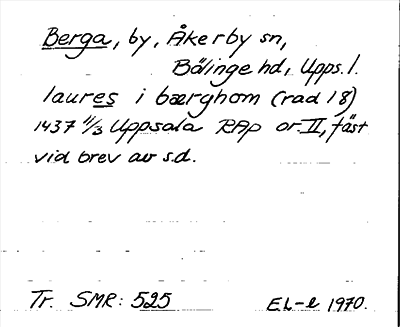 Berga, by, Åkerby sn,
Bälinge hd, Upps. l.
laures i bærghom (rad 18)
1437 11/3 Uppsala RAp or. II, fäst
vid brev av s.d.
Tr. SMR: 525 EL-l 1970.